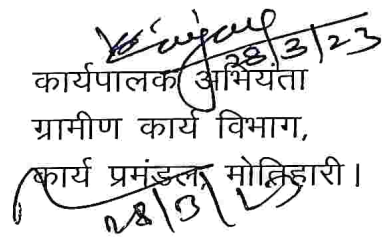 28/3/23
कार्यपालक अभियंता
ग्रामीण कार्य विभाग,
कार्य प्रमंडल, मोतिहारी।
28/3/23